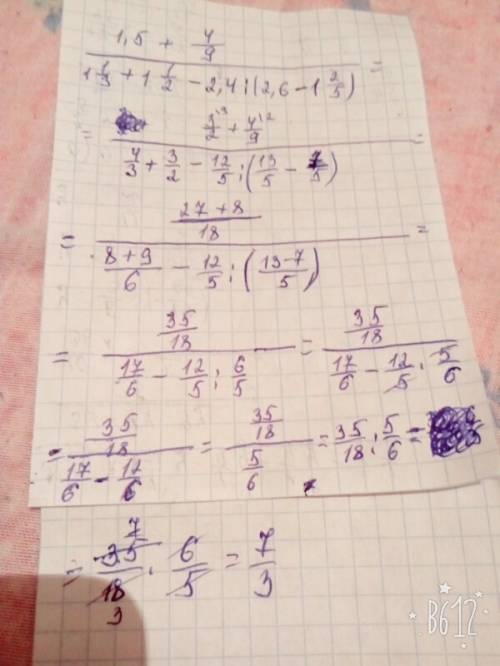 1,5 + 4/9
1 1/3 + 1 1/2 - 2,4 : (2,6 - 1 2/5) =
= 3/2 ^9 + 4/9 ^2
4/3 + 3/2 - 12/5 : (13/5 - 7/5) =
= 27 + 8 / 18
8+9/6 - 12/5 : (13-7/5) =
= 35/18 / 17/6 - 12/5 : 6/5 = 35/18 / 17/6 - 12/5 · 5/6
= 35/18 / 17/6 - 12/6 = 35/18 / 5/6 = 35/18 : 5/6 =
= 35 7 / 18 3 · 6/5 = 7/3
B612